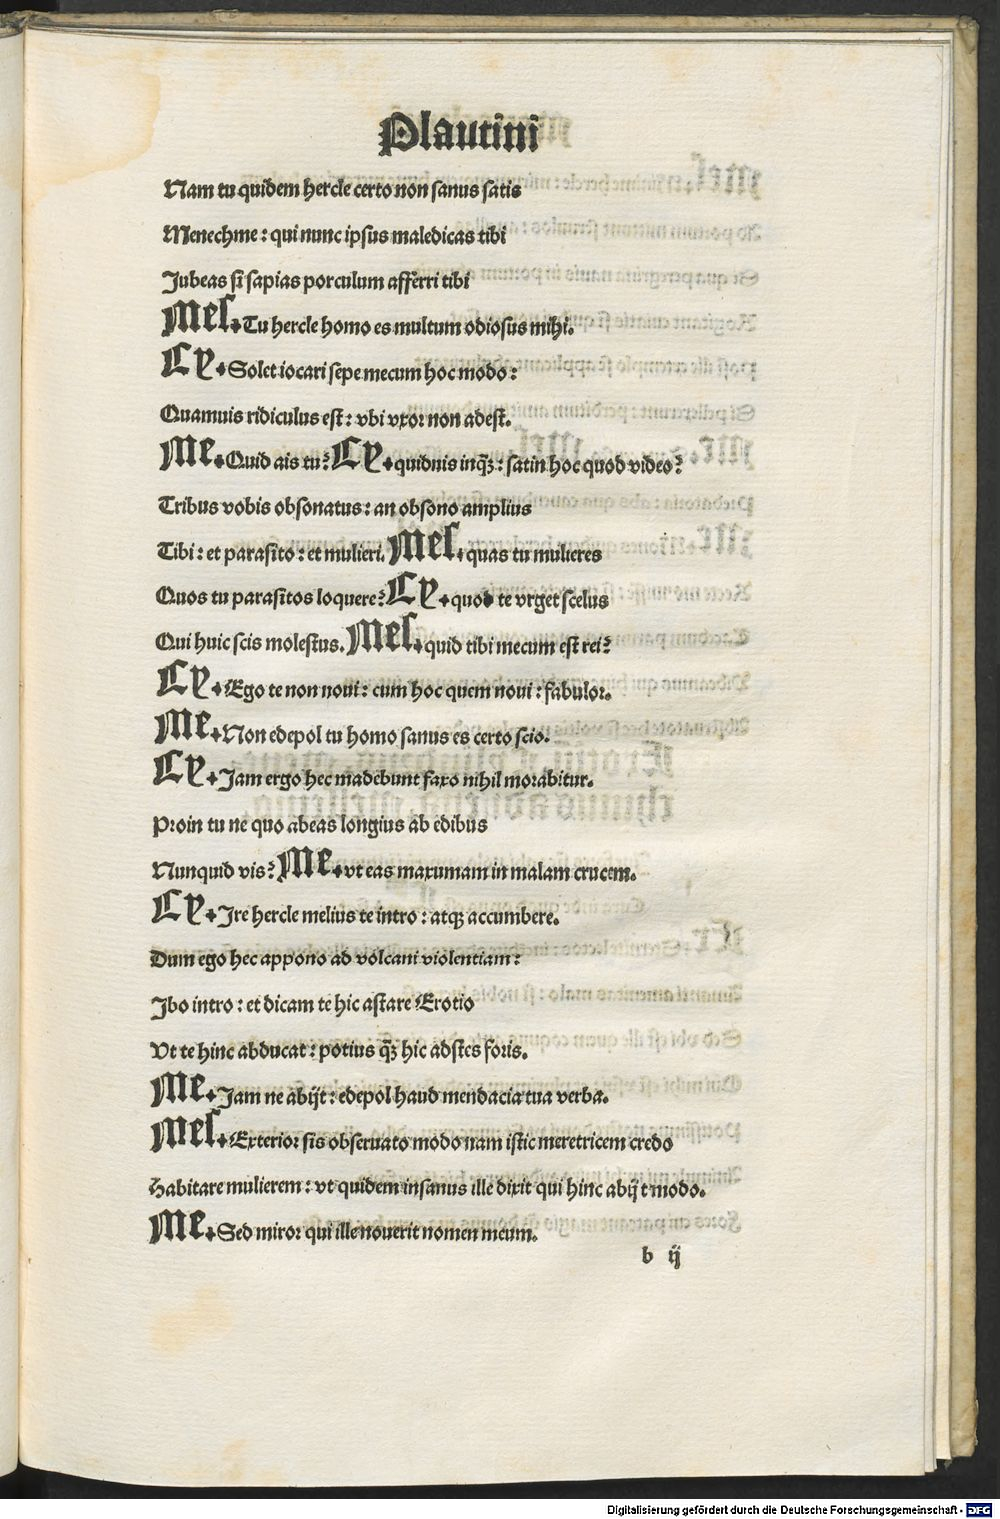 Plautini
Nam tu quidem hercle certo non sanus satis
Menechme : qui nunc ipsus maledicas tibi
Jubeas si sapias porculum afferri tibi
Mes. Tu hercle homo es multum odiosus mihi.
Cy. Solet iocari sepe mecum hoc modo :
Quamuis ridiculus est : vbi vxor non adest.
Me. Quid ais tu? Cy. quidnis inqȝ : satin hoc quod video?
Tribus vobis obsonatus : an obsono amplius
Tibi : et parasito : et mulieri. Mes. quas tu mulieres
Quos tu parasitos loquere? Cy. quod te vrget scelus
Qui huic scis molestus. Mes. quid tibi mecum est rei?
Cy. Ego te non noui : cum hoc quem noui : fabulor.
Me. Non edepol tu homo sanus es certo scio.
Cy. Jam ergo hec madebunt faxo nihil morabitur.
Proin tu ne quo abeas longius ab edibus
Nunquid vis? Me. vt eas maxumam in malam crucem.
Cy. Jre hercle melius te intro : atqȝ accumbere.
Dum ego hec appono ad volcani violentiam :
Jbo intro : et dicam te hic astare Erotio
Vt te hinc abducat : potius qȝ hic adstes foris.
Me. Jam ne abijt : edepol haud mendacia tua verba.
Mes. Exterior sis obseruato modo nam istic meretricem credo
Habitare mulierem : vt quidem insanus ille dixit qui hinc abijt modo.
Me. Sed miror qui ille nouerit nomen meum.
b ij
Digitalisierung gefördert durch die Deutsche Forschungsgemeinschaft - DFG